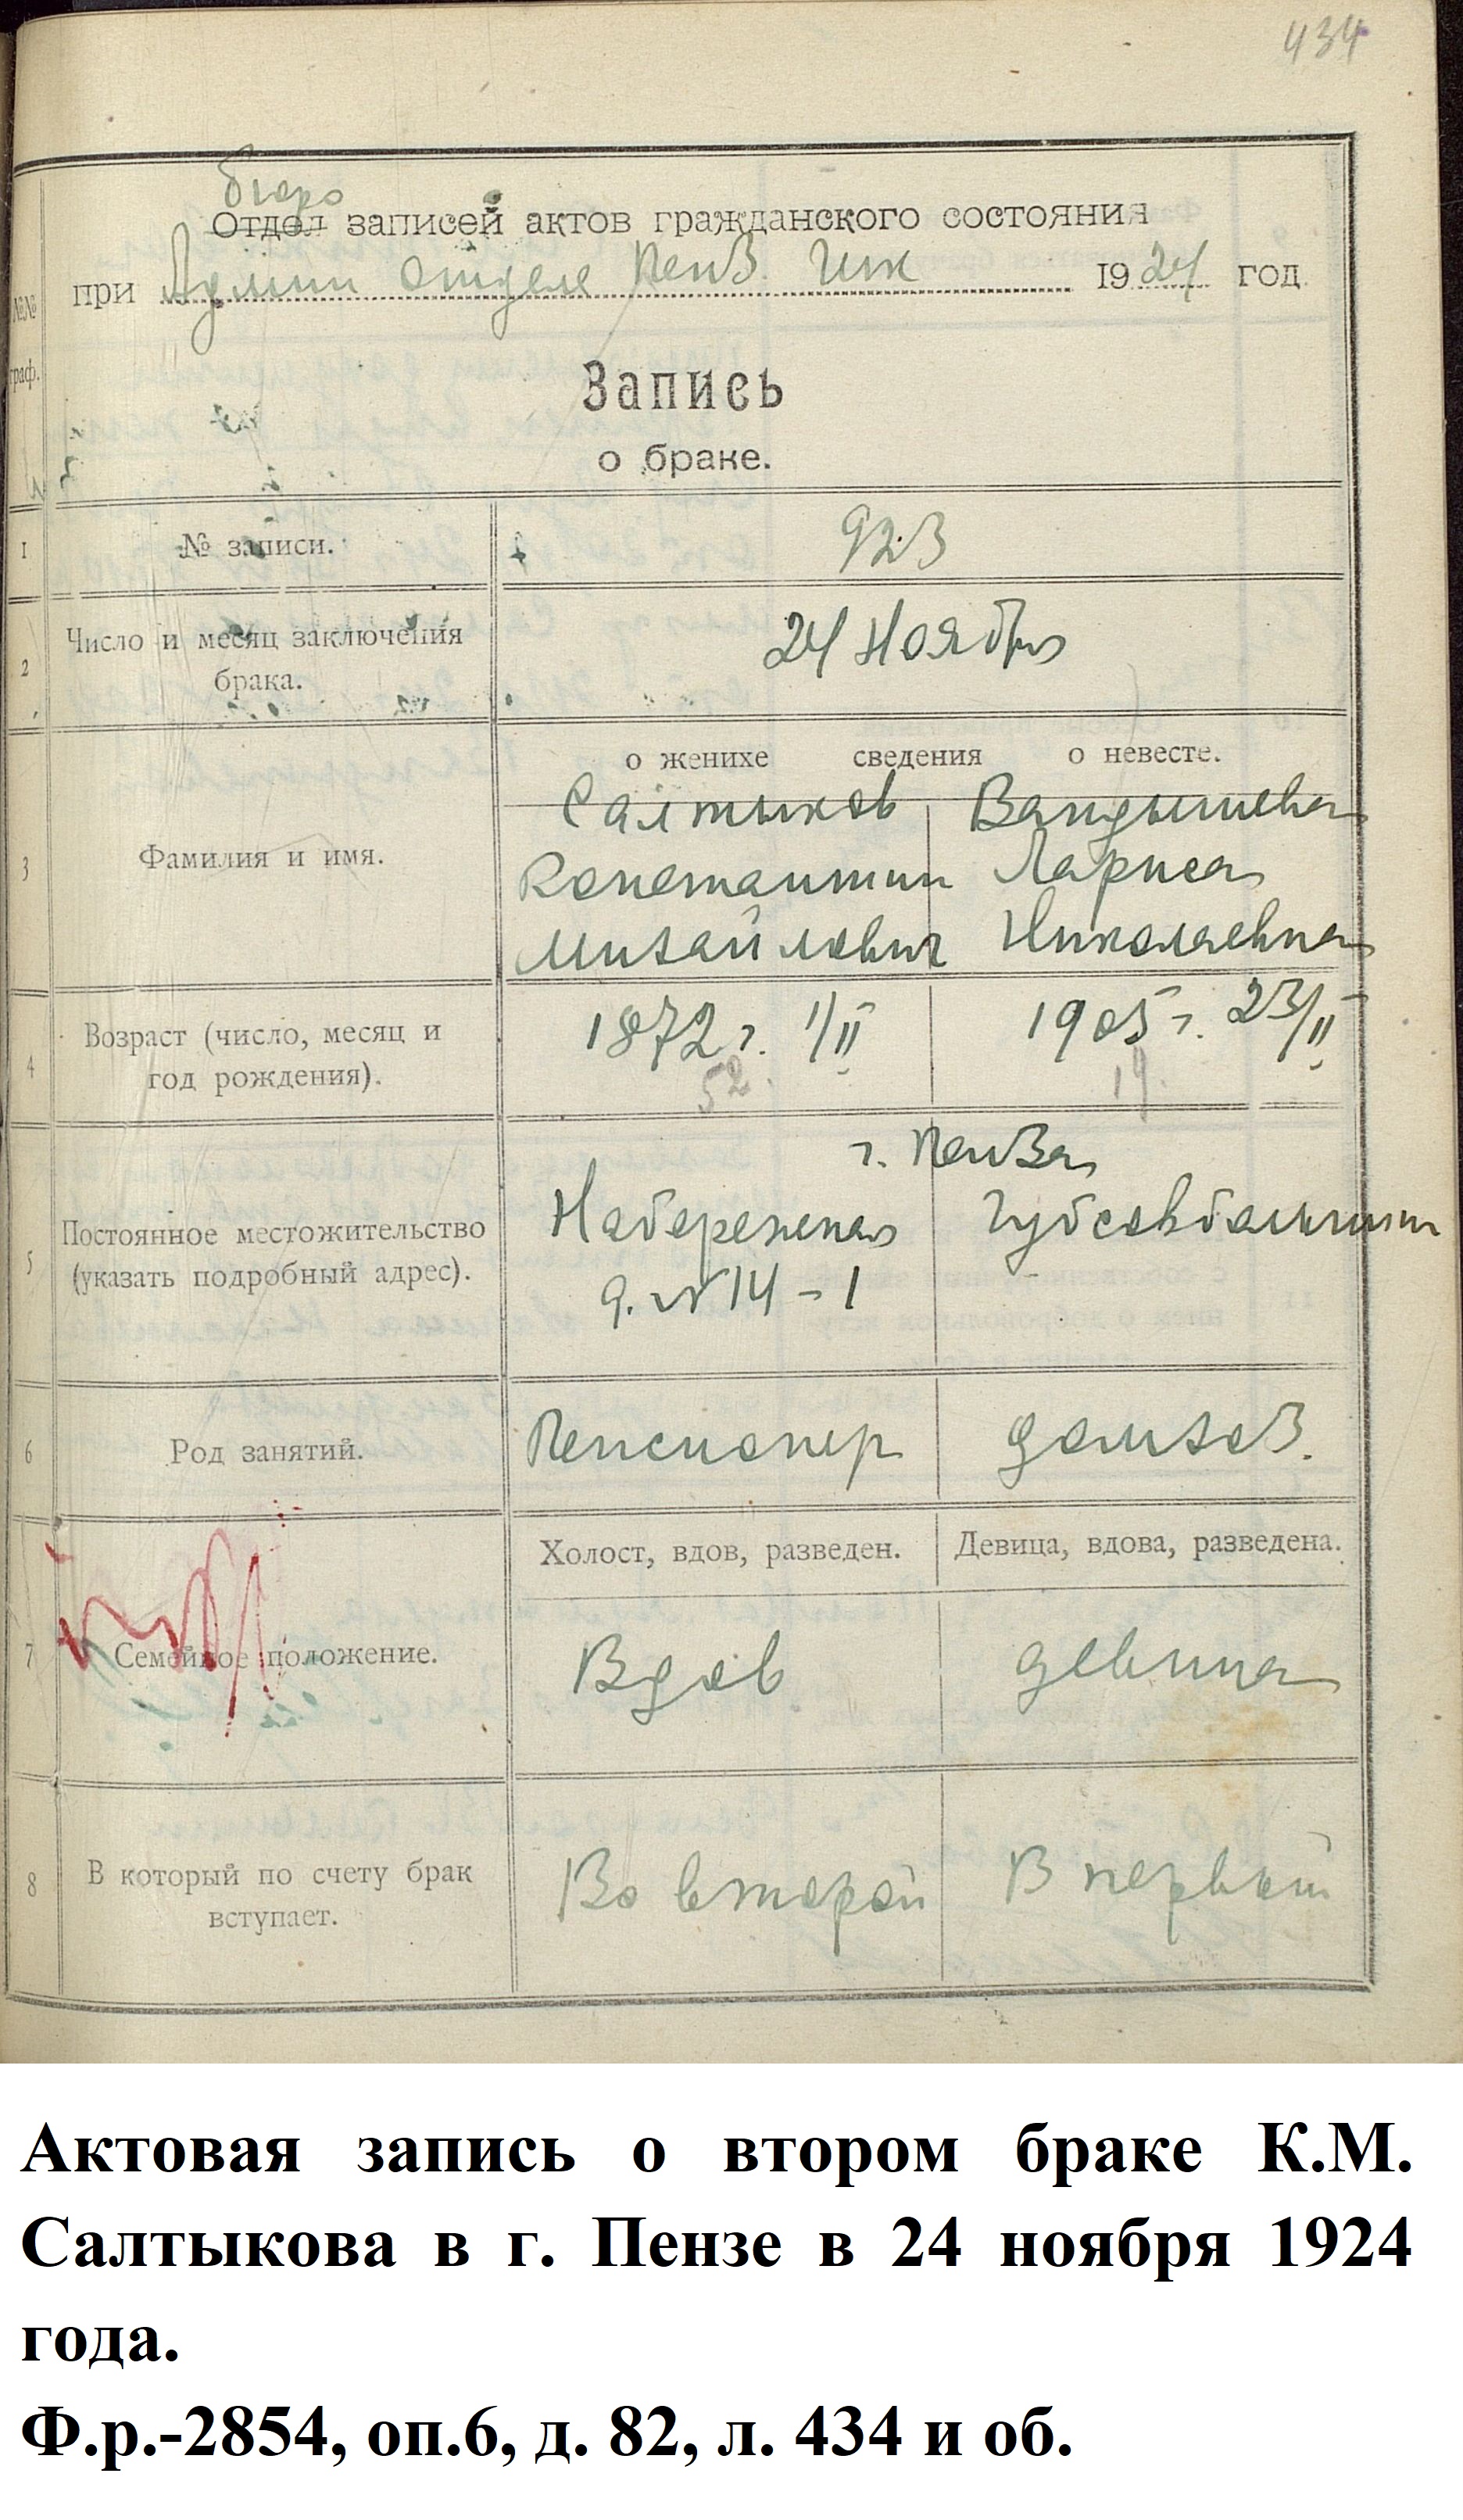 434
бюро
Отдел записей актов гражданского состояния
при Админ отделе Пенз. Гик 1924 год.
№№ граф.
Запись
о браке.
1 № записи. 923
2 Число и месяц заключения брака. 24 Ноября
о женихе сведения о невесте.
3 Фамилия и имя.
Салтыков Вандышева
Константин Лариса
Михайлович Николаевна
4 Возраст (число, месяц и год рождения).
1872 г. 1/II 1905 г. 23/II
52. 19.
г. Пенза
5 Постоянное местожительство (указать подробный адрес).
Набережная Губсовбольници
д. № 14 - 1
6 Род занятий. Пенсионер домхоз.
Холост, вдов, разведен. Девица, вдова, разведена.
7 Семейное положение. Вдов девица
8 В который по счету брак вступает. Во второй В первый
Актовая запись о втором браке К.М.
Салтыкова в г. Пензе в 24 ноября 1924
года.
Ф.р.-2854, оп.6, д. 82, л. 434 и об.